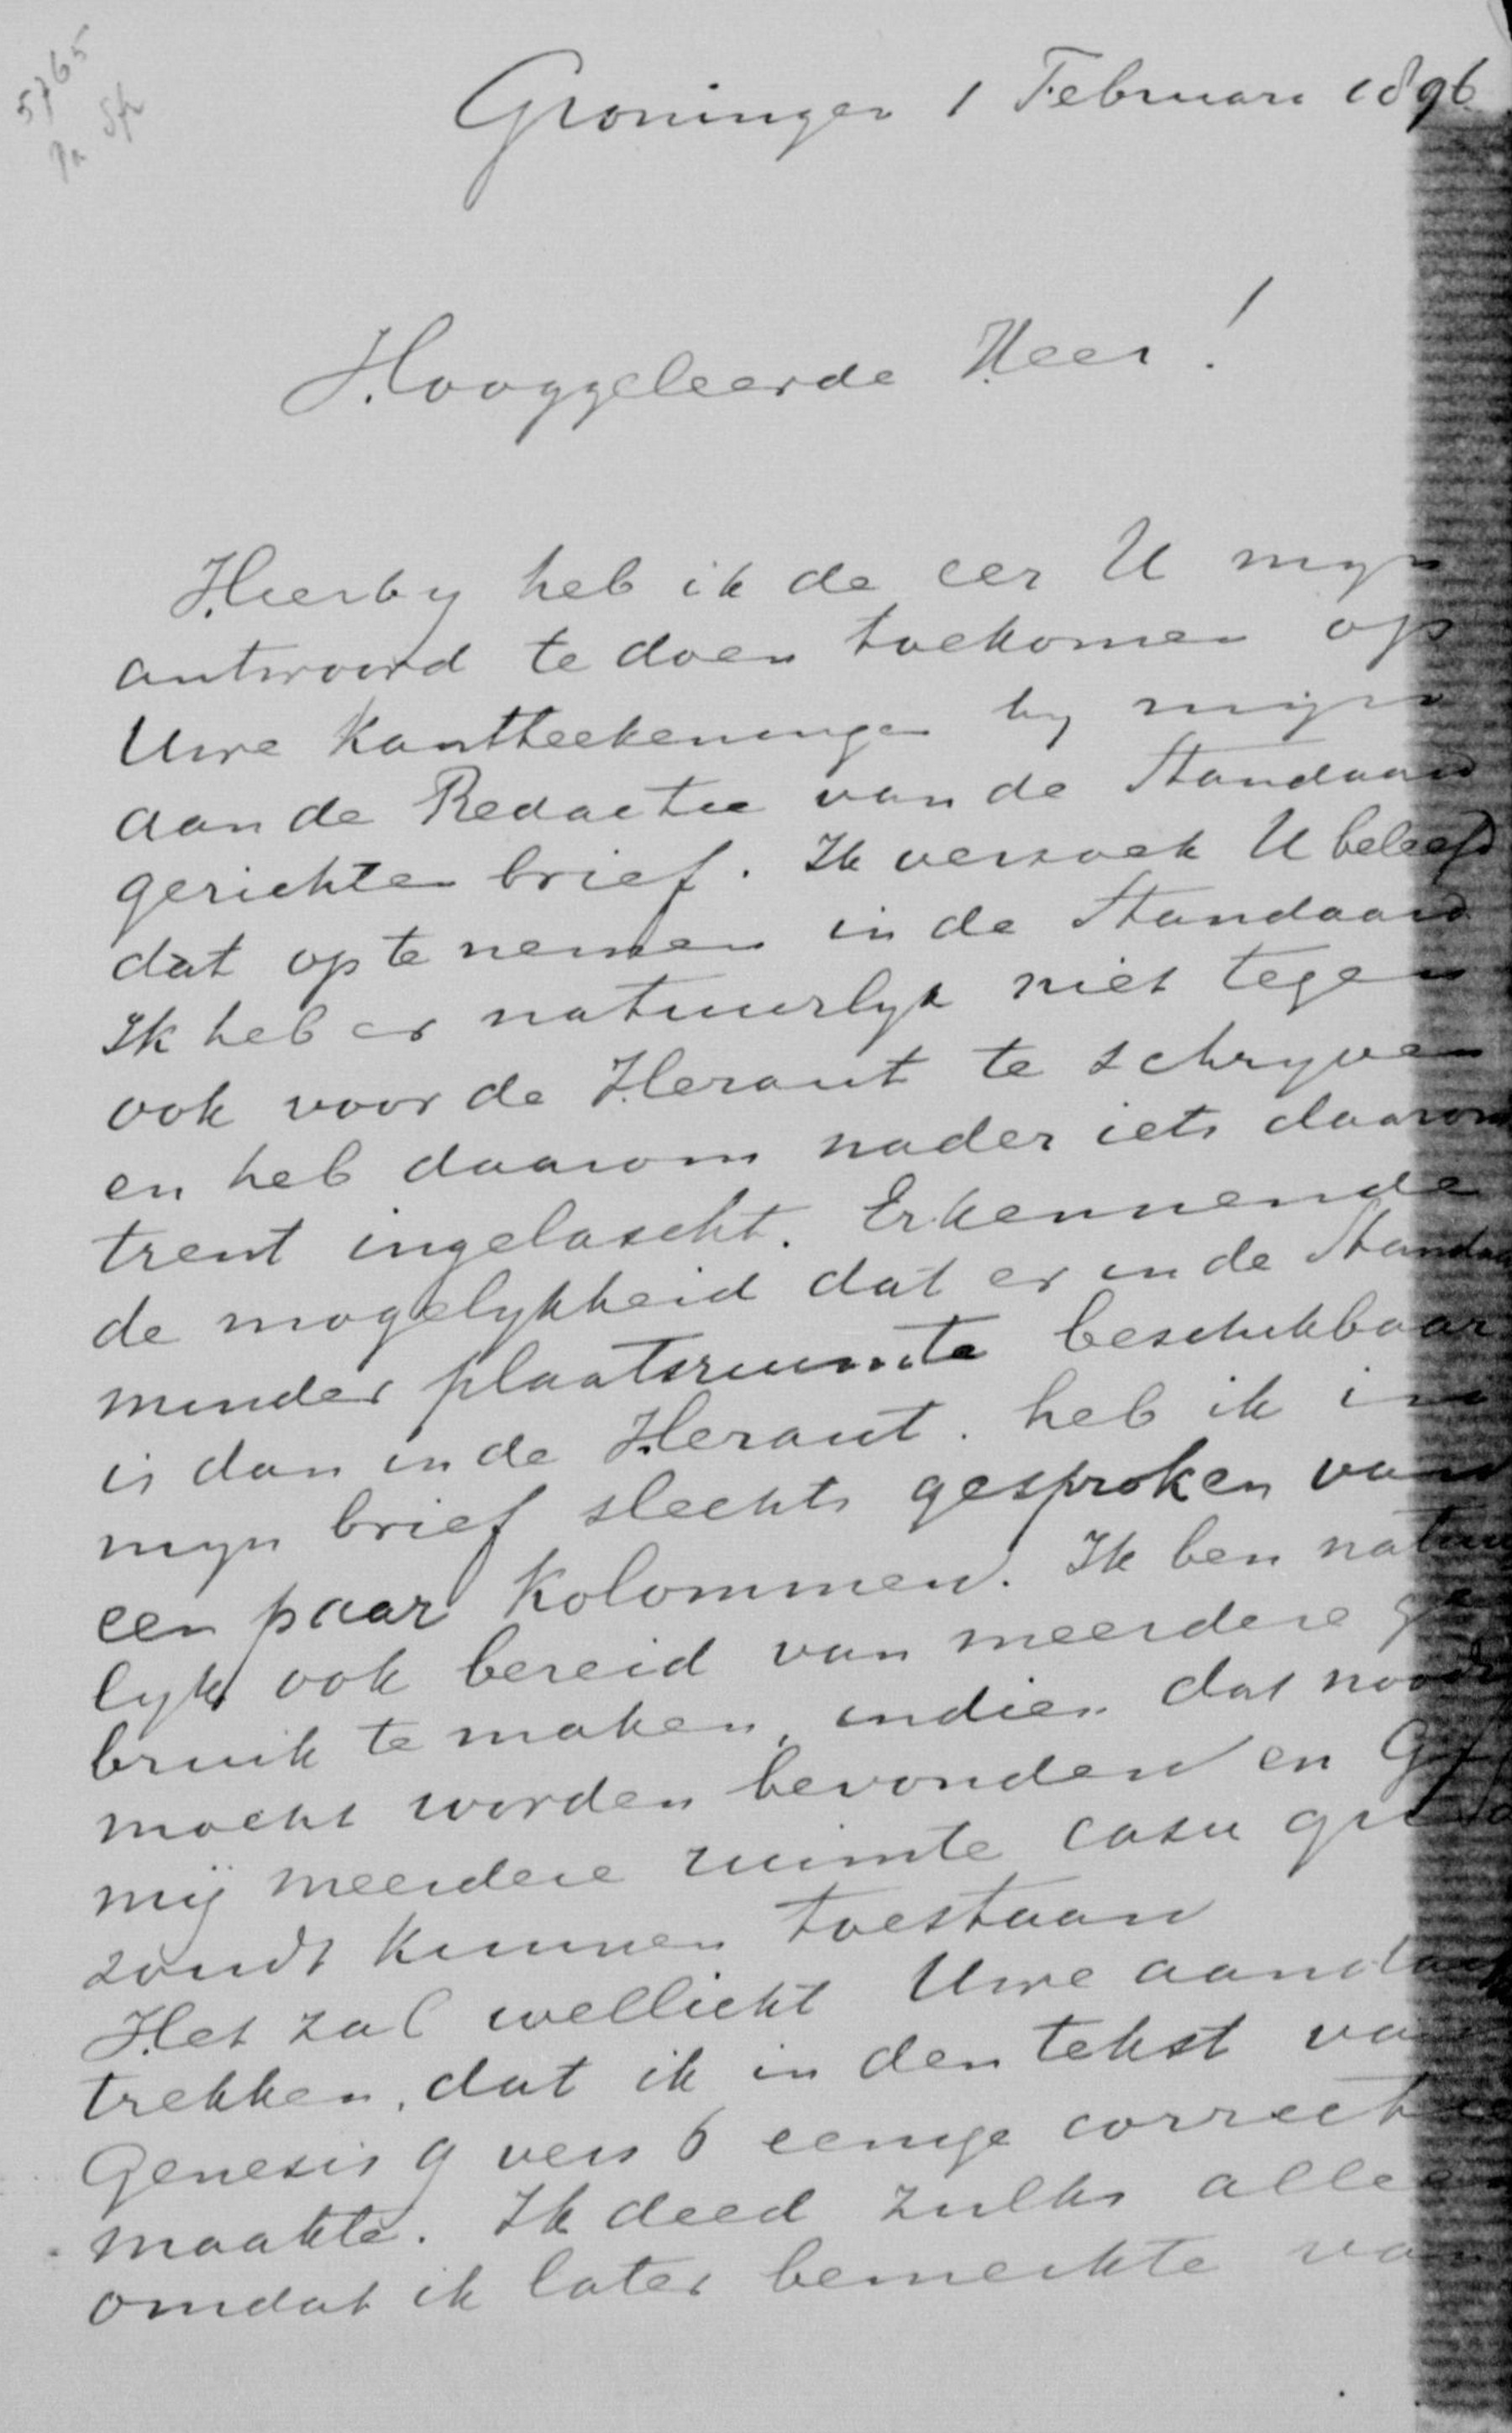 5765
Groningen 1 Februari 1896
Hooggeleerde Heer!
Hierby heb ik de eer U myn
antwoord te doen toekomen op
Uwe Kantteekeningen by mijn
aan de Redactie van de Standaard
gerichten brief. Ik verzoek U beleefd
dat op te nemen in de Standaard
Ik heb er natuurlyk niet tegen
ook voor de Heraut te schryven
en heb daarom nader iets daarom
trent ingelascht. Erkennende
de mogelykheid dat er in de Standaa
minder plaatsruimte beschikbaar
is dan in de Heraut. heb ik in
myn brief slechts gesproken van
een paar Kolommen. Ik ben natuu
lyk ook bereid van meerdere ge
bruik te maken, indien dat noodi
mocht worden bevonden en Gy
mij meerdere ruimte casu quo
zoudt kunnen toestaan
Het zal wellicht Uwe aandach
trekken, dat ik in den tekst van
Genesis 9 vers 6 eenige correctie
maakte. Ik deed zulks alleen
omdat ik later bemerkte van